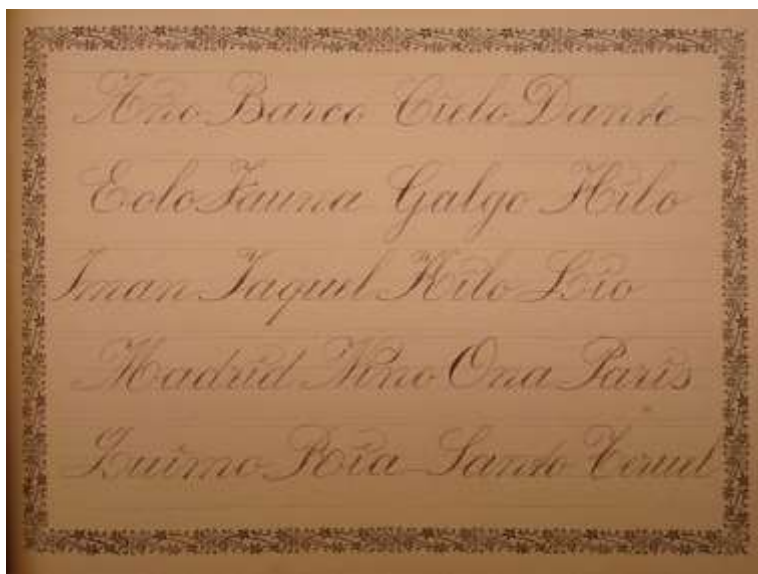 Año Barco Cielo Dante
Eolo Fauna Galgo Hilo
Iman Jaquel Kilo Lio
Madrid Nino Ona Paris
Quimo Ria Santo Teruel